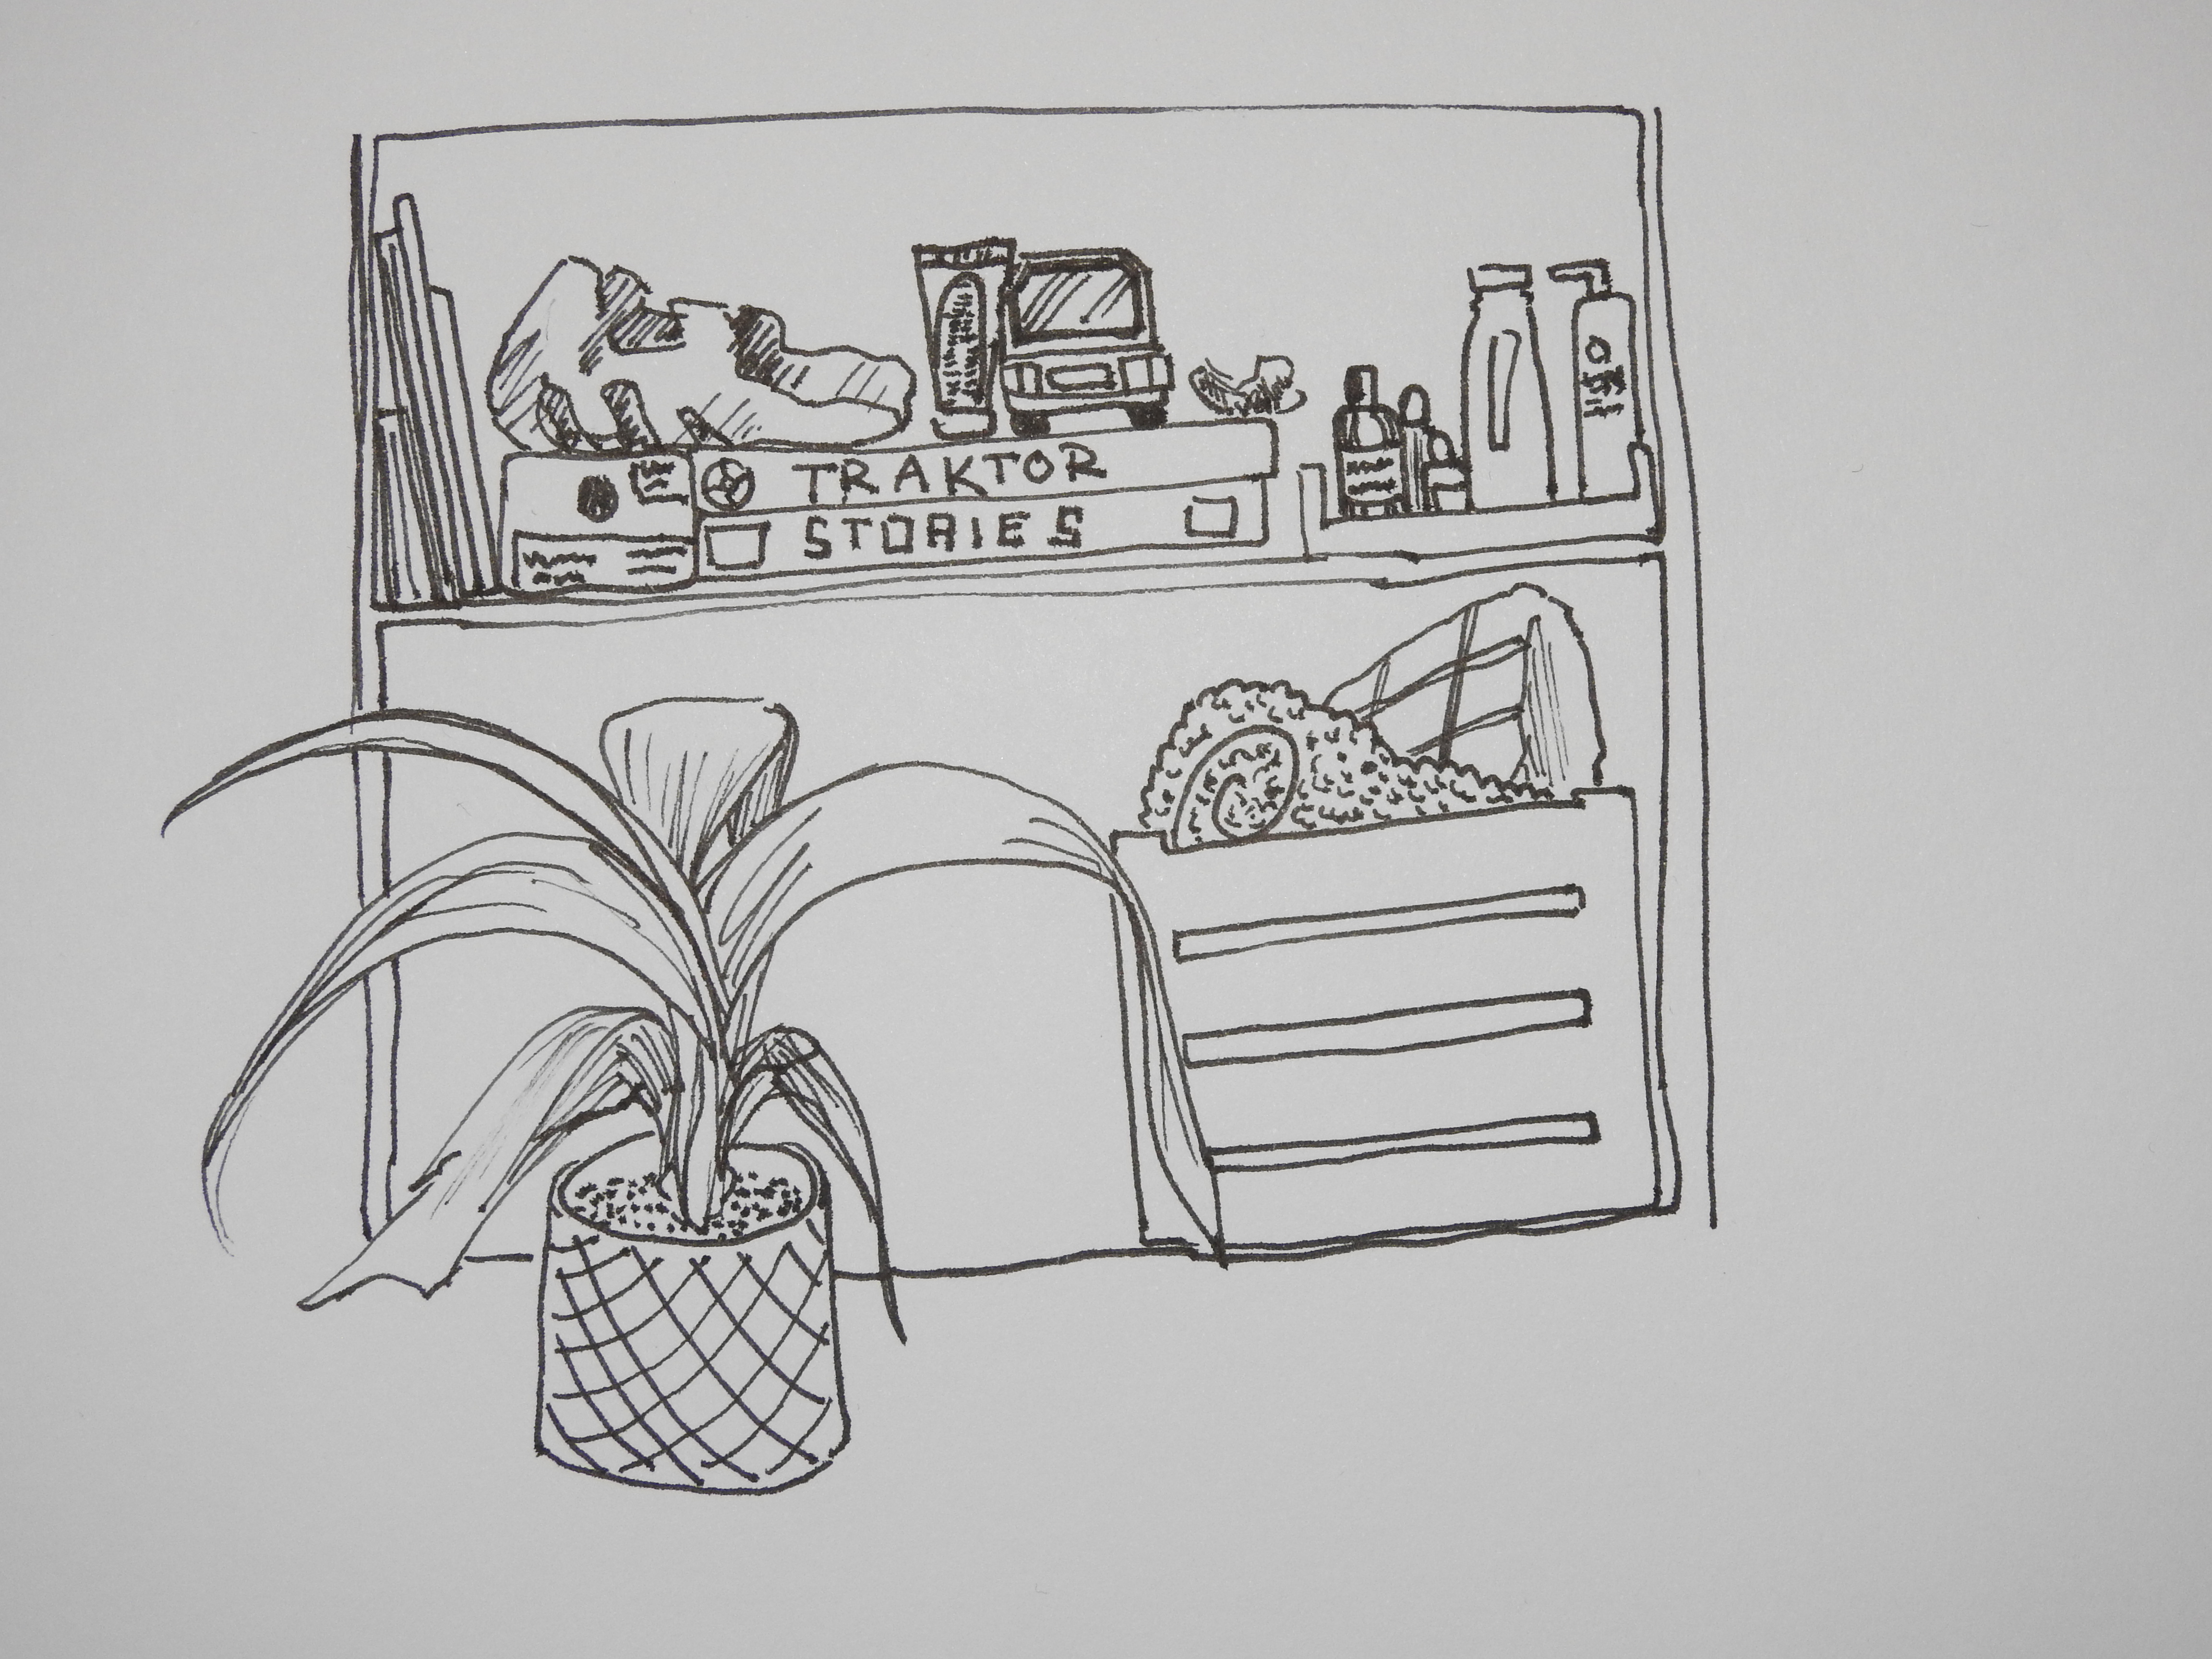 TRAKTOR
STORIES